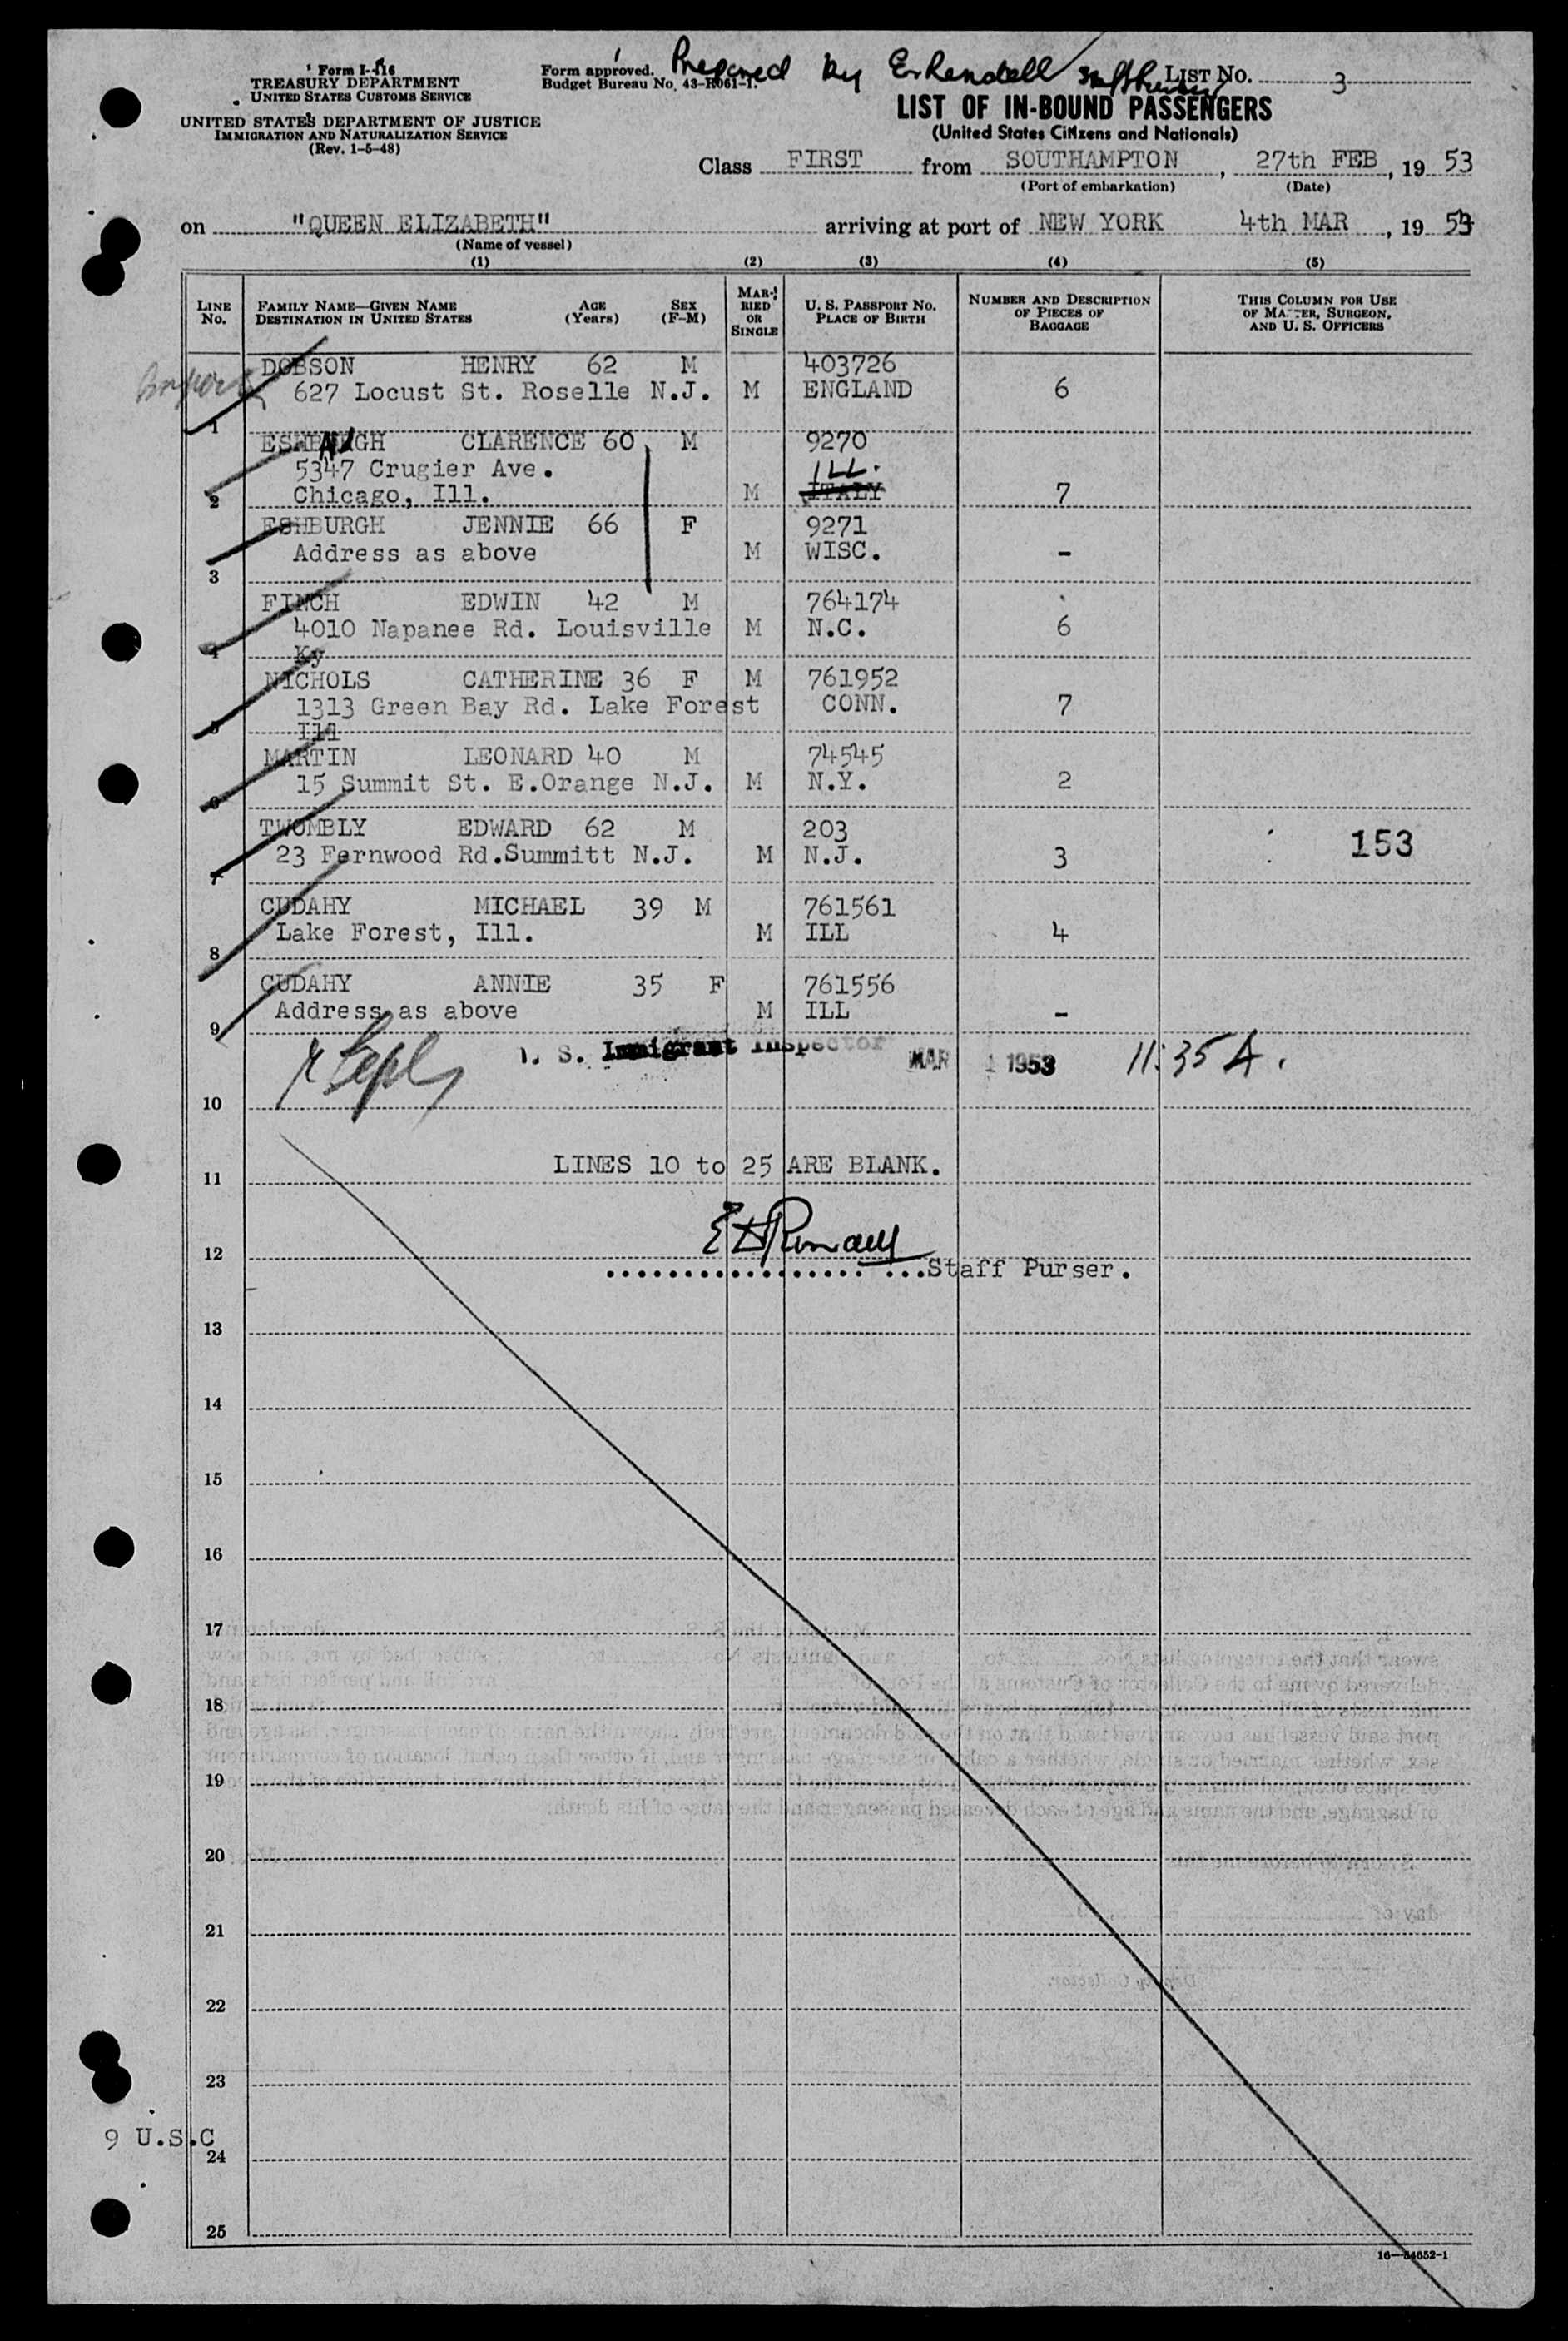 Form I-416
TREASURY DEPARTMENT
UNITED STATES CUSTOMS SERVICE
UNITED STATES DEPARTMENT OF JUSTICE
IMMIGRATION AND NATURALIZATION SERVICE
(Rev. 1-5-48)
Form approved.
Budget Bureau No. 43-R061-1.
Prepared by
LIST NO. 3
LIST OF IN-BOUND PASSENGERS
(United States Citizens and Nationals)
Class FIRST from SOUTHAMPTON, 27th FEB, 19 53
(Port of embarkation) (Date)
on "QUEEN ELIZABETH" arriving at port of NEW YORK 4th MAR, 19 53
(Name of vessel)
(1) (2) (3) (4) (5)
LINE NO. FAMILY NAME—GIVEN NAME DESTINATION IN UNITED STATES AGE (Years) SEX (F-M) MARRIED OR SINGLE U. S. PASSPORT NO. PLACE OF BIRTH NUMBER AND DESCRIPTION OF PIECES OF BAGGAGE THIS COLUMN FOR USE OF MASTER, SURGEON, AND U. S. OFFICERS
DOBSON HENRY 62 M 403726
627 Locust St. Roselle N.J. M ENGLAND 6
1
ESHBAUGH CLARENCE 60 M 9270
5347 Crugier Ave. ILL.
2 Chicago, Ill. M ITALY 7
ESHBURGH JENNIE 66 F 9271
Address as above M WISC. -
3
FINCH EDWIN 42 M 764174
4010 Napanee Rd. Louisville M N.C. 6
4 Ky
NICHOLS CATHERINE 36 F M 761952
1313 Green Bay Rd. Lake Forest CONN. 7
5 Ill
MARTIN LEONARD 40 M 74545
15 Summit St. E.Orange N.J. M N.Y. 2
6
TWOMBLY EDWARD 62 M 203
23 Fernwood Rd.Summitt N.J. M N.J. 3 153
7
CUDAHY MICHAEL 39 M 761561
Lake Forest, Ill. M ILL 4
8
CUDAHY ANNIE 35 F 761556
Address as above M ILL -
9
U. S. Immigrant Inspector MAR 1953 11:35 A.
10
LINES 10 to 25 ARE BLANK.
11
12
.................. ...Staff Purser.
13
14
15
16
17
18
19
20
21
22
23
9 U.S.C
24
25
16—54652-1